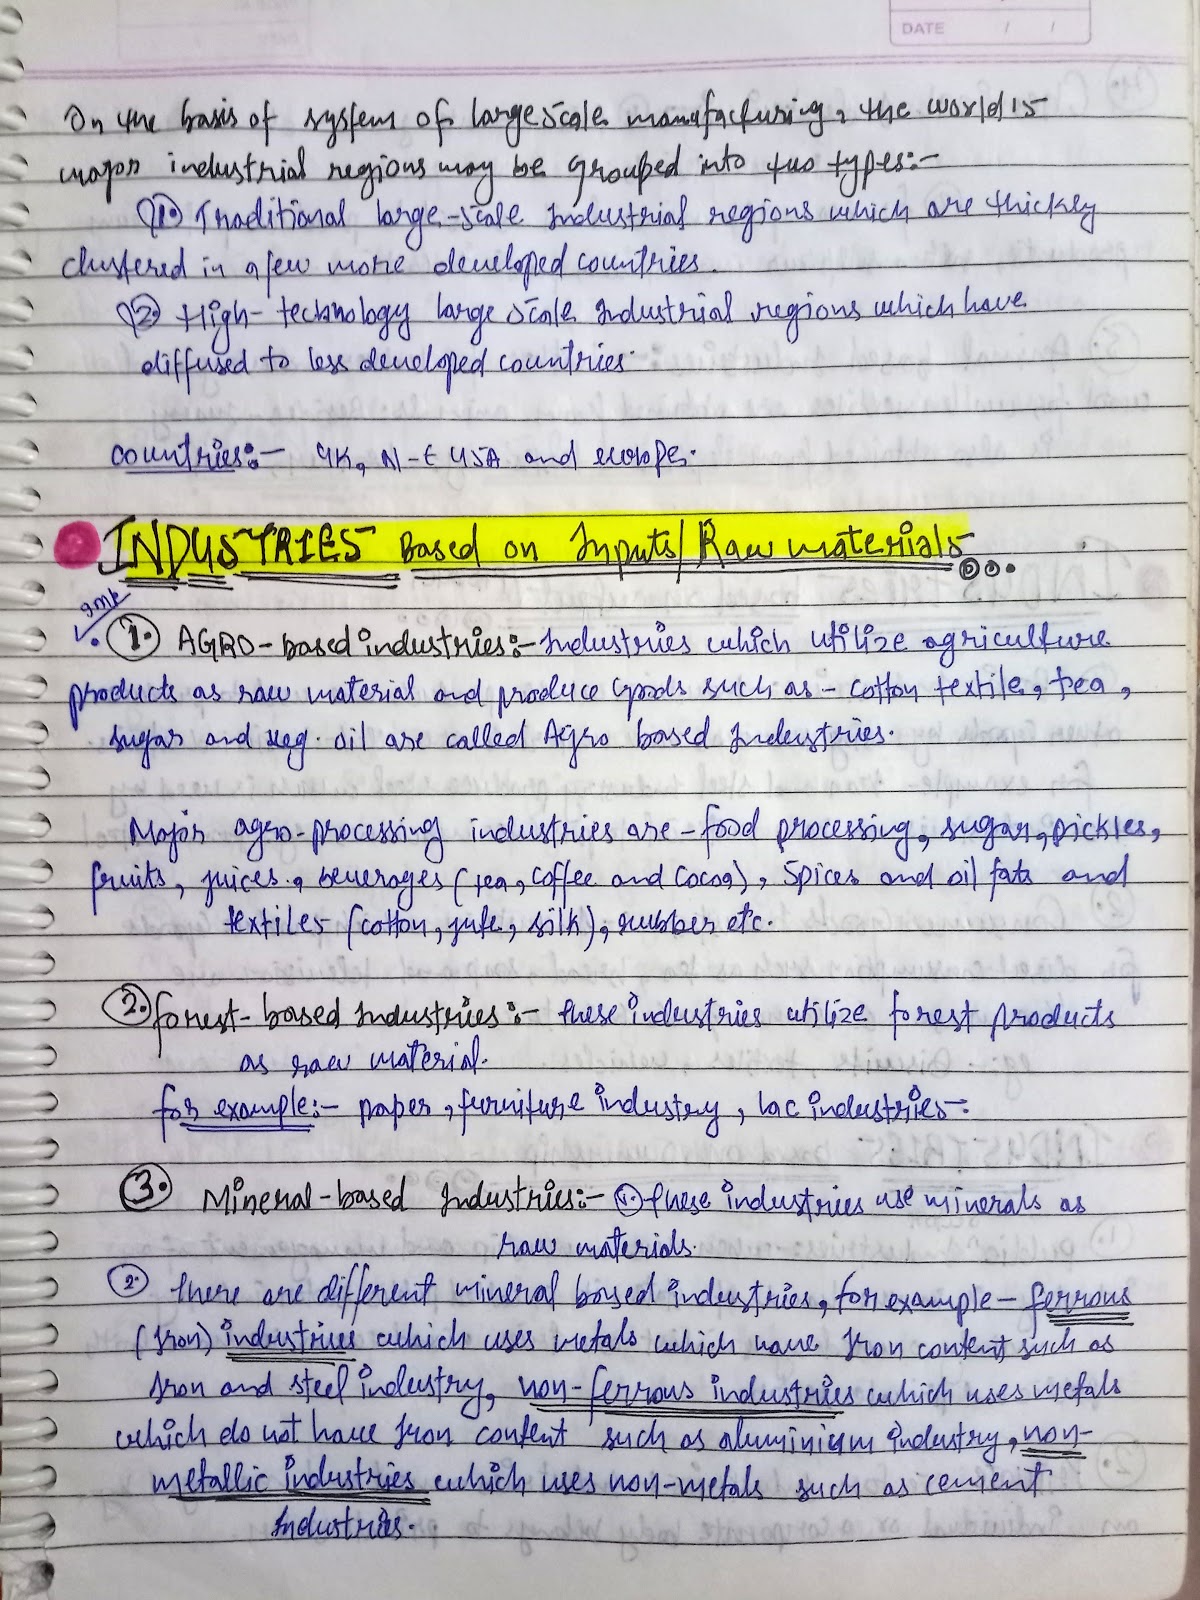 DATE / /
On the basis of system of large scale manufacturing, the world's
major industrial regions may be grouped into two types:-
(1.) Traditional large-scale Industrial regions which are thickly
clustered in a few more developed countries.
(2.) High-technology large scale Industrial regions which have
diffused to less developed countries.
countries:- UK, N-E USA and europe.
INDUSTRIES Based on Inputs/Raw materials...
Imp
1. AGRO-based industries:- Industries which utilize agriculture
products as raw material and produce goods such as - cotton textile, tea,
sugar and veg. oil are called Agro based Industries.
Major agro-processing industries are - food processing, sugar, pickles,
fruits, juices, beverages (tea, coffee and cocoa), spices and oil fats and
textiles (cotton, jute, silk), rubber etc.
2. forest-based Industries:- these industries utilize forest products
as raw material.
for example:- paper, furniture industry, lac industries.
3. Mineral-based Industries:- 1. these industries use minerals as
raw materials.
2. there are different mineral based industries, for example - ferrous
(Iron) industries which uses metals which have Iron content such as
Iron and steel industry, non-ferrous industries which uses metals
which do not have Iron content such as aluminium industry, non-
metallic industries which uses non-metals such as cement
Industries.